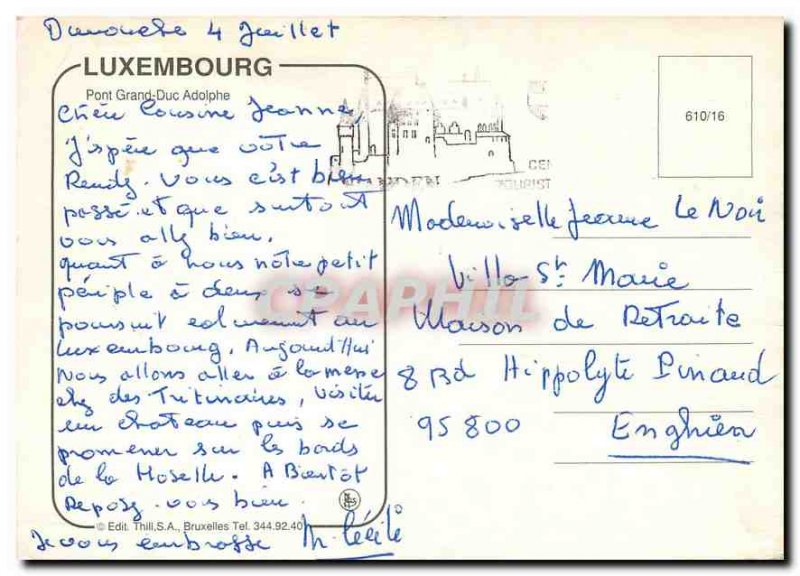 Dimanche 4 Juillet
LUXEMBOURG
Pont Grand-Duc Adolphe
Chère Cousine Jeanne,
J'espère que votre
Rendez-vous c'est bien
passé et que surtout
vous allez bien.
quant à nous nôtre petit
périple à deux se
poursuit calmement au
Luxembourg. Aujourd'hui
Nous allons aller à la messe
chez des Trinitaires, visiter
un chateau puis se
promener sur les bords
de la Moselle. A Bientôt
Reposez-vous bien.
© Edit. Thill, S.A., Bruxelles Tel. 344.92.40
Je vous embrasse M. Cécile
610/16
VIANDEN
TOURIST
Mademoiselle Jeanne Le Noir
Villa Ste Marie
Maison de Retraite
8 Bd Hippolyte Pinaud
95800 Enghien
CPAPHIL